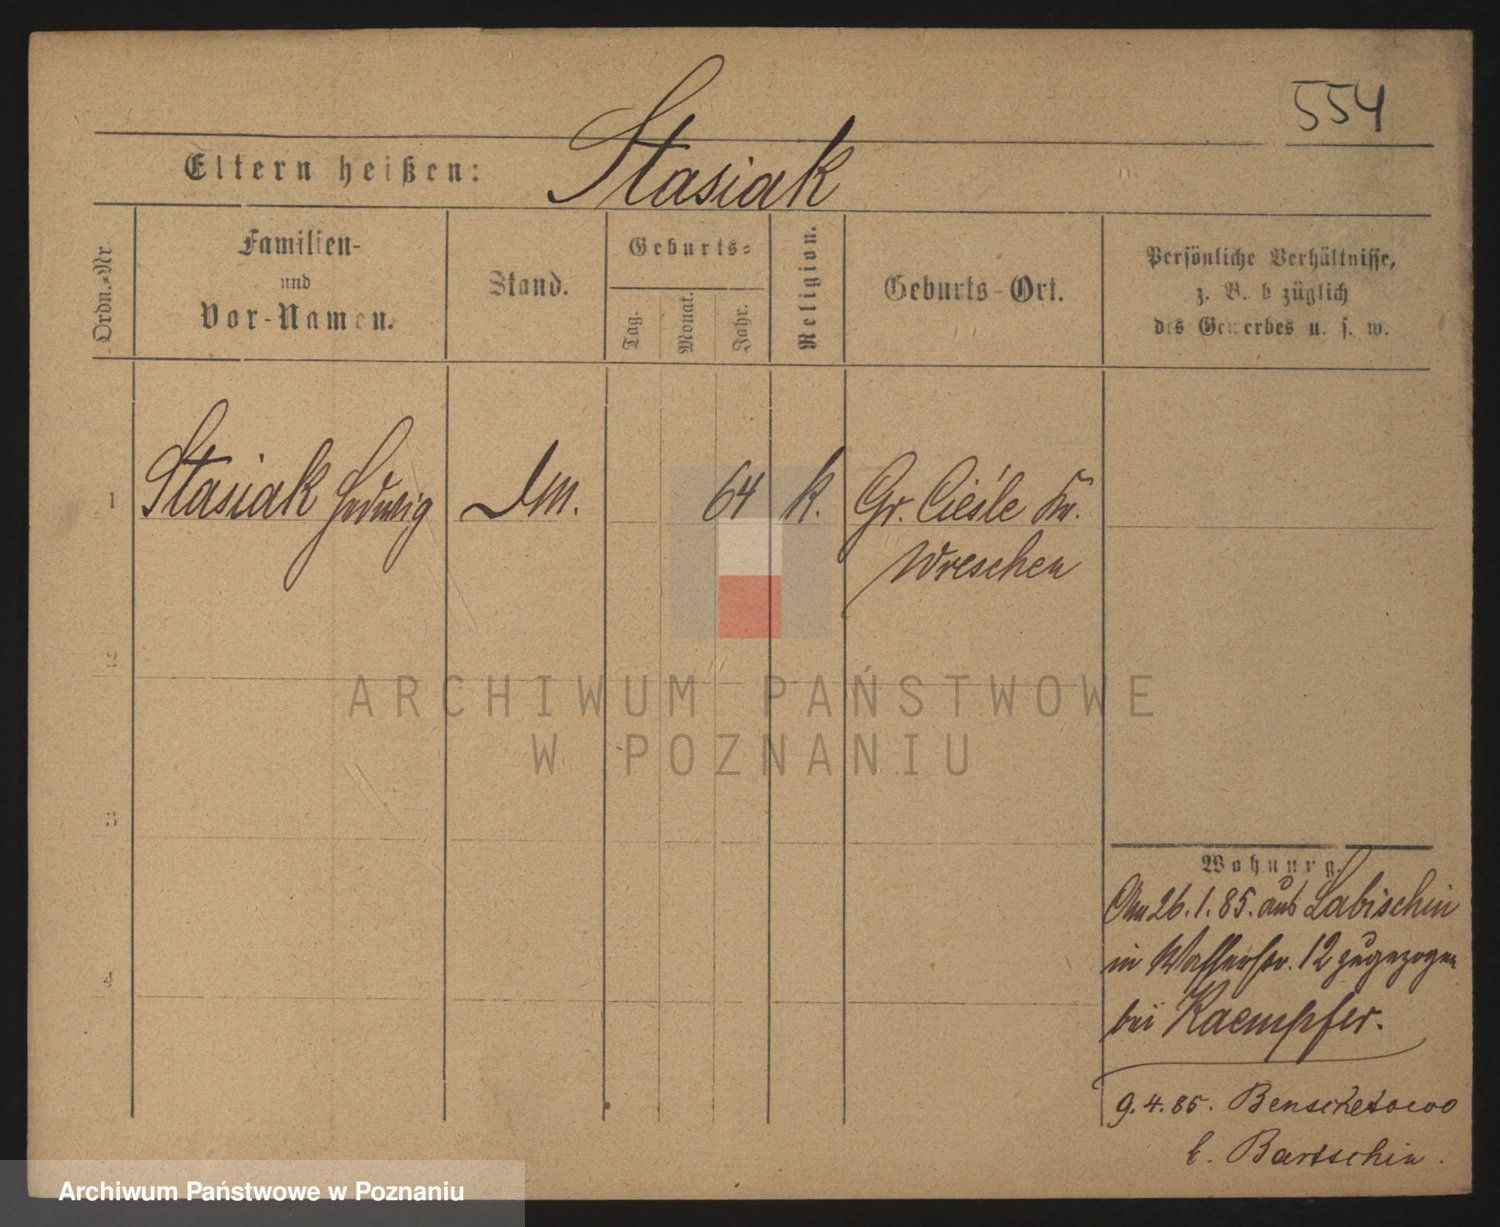 554
Eltern heißen: Stasiak
Ordn.-Nr
Familien-
und
Vor-Namen.
Stand.
Geburts=
Tag.
Monat.
Jahr.
Religion.
Geburts-Ort.
Persönliche Verhältnisse,
z. B. b züglich
des Gewerbes u. s. w.
1 Stasiak Hedwig 64 k. Gr. Cieśle Kr.
Wreschen
2
3
4
ARCHIWUM PAŃSTWOWE
W POZNANIU
Wohnung.
26.1.85. aus Labischin
in Wasserstr. 12 zugezogen
bei Kaempfer.
9.4.85.
b. Bartschin.
Archiwum Państwowe w Poznaniu